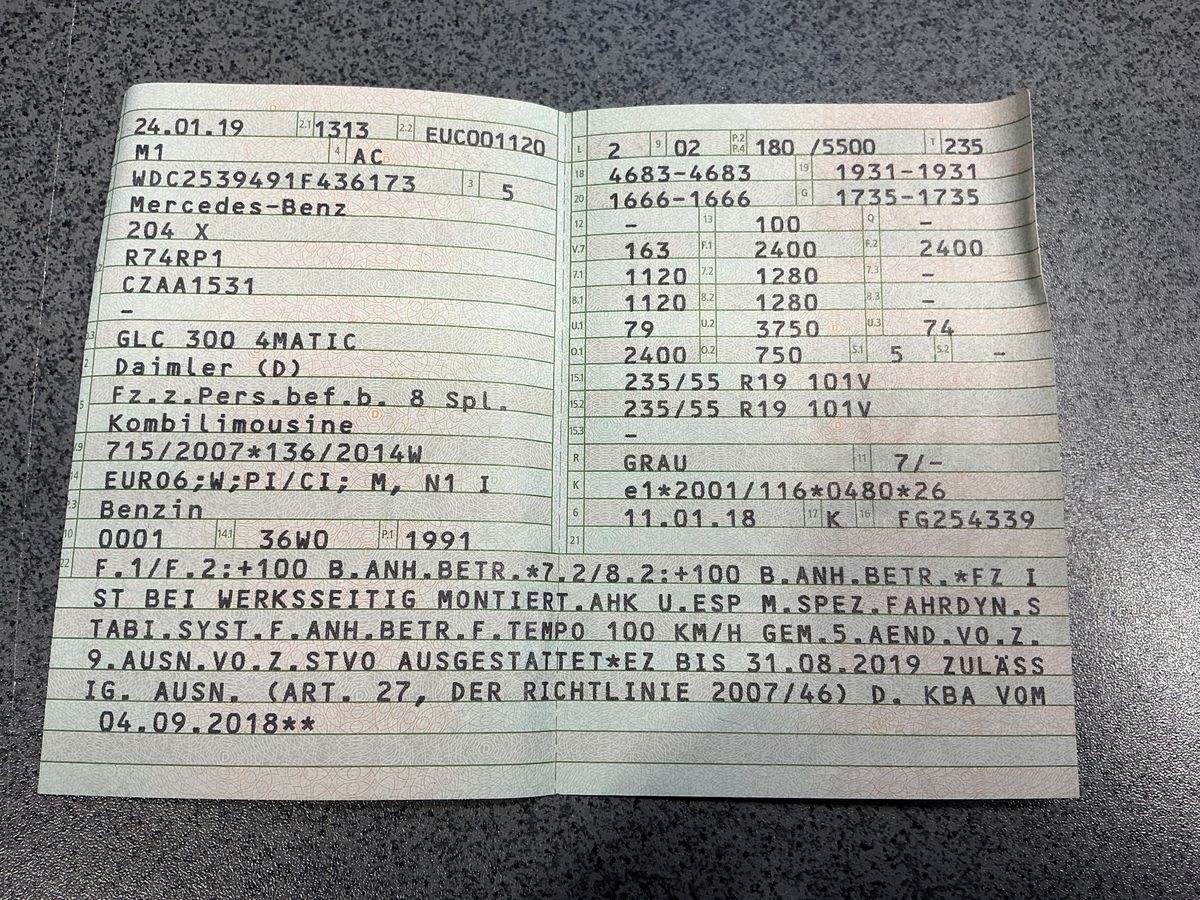 24.01.19 2.1 1313 2.2 EUC001120
M1 4 AC
WDC2539491F436173 3 5
Mercedes-Benz
204 X
R74RP1
CZAA1531
–
GLC 300 4MATIC
Daimler (D)
Fz.z.Pers.bef.b. 8 Spl.
Kombilimousine
715/2007*136/2014W
EURO6;W;PI/CI; M, N1 I
Benzin
0001 14.1 36W0 P.1 1991
L 2 9 02 P.2 P.4 180 /5500 T 235
18 4683-4683 19 1931-1931
20 1666-1666 G 1735-1735
12 – 13 100 Q –
V.7 163 F.1 2400 F.2 2400
7.1 1120 7.2 1280 7.3 –
8.1 1120 8.2 1280 8.3 –
U.1 79 U.2 3750 U.3 74
O.1 2400 O.2 750 S.1 5 S.2 –
15.1 235/55 R19 101V
15.2 235/55 R19 101V
15.3 –
R GRAU 11 7/-
K e1*2001/116*0480*26
6 11.01.18 17 K 16 FG254339
21
22 F.1/F.2:+100 B.ANH.BETR.*7.2/8.2:+100 B.ANH.BETR.*FZ I
ST BEI WERKSSEITIG MONTIERT.AHK U.ESP M.SPEZ.FAHRDYN.S
TABI.SYST.F.ANH.BETR.F.TEMPO 100 KM/H GEM.5.AEND.VO.Z.
9.AUSN.VO.Z.STVO AUSGESTATTET*EZ BIS 31.08.2019 ZULÄSS
IG. AUSN. (ART. 27, DER RICHTLINIE 2007/46) D. KBA VOM
04.09.2018**